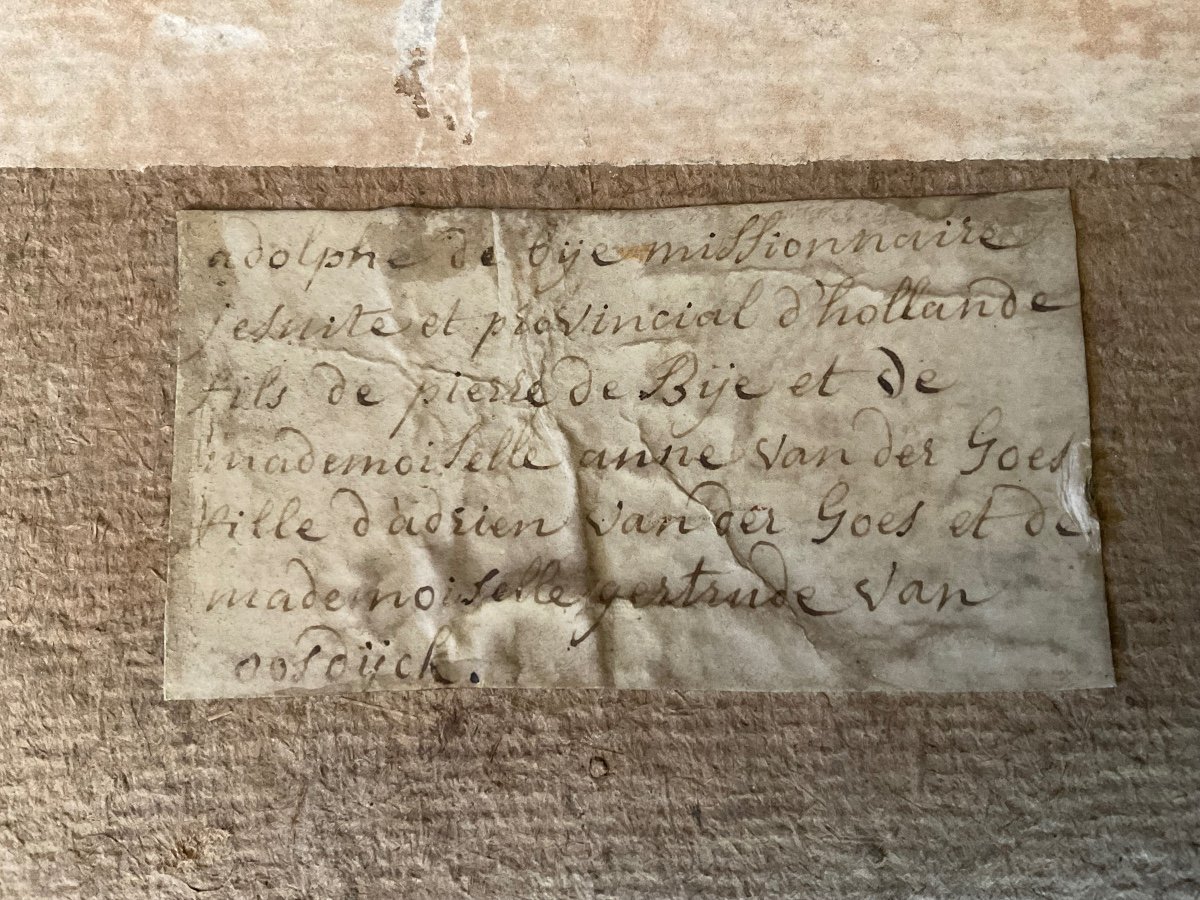 adolphe de bije missionnaire
jesuite et provincial d'hollande
fils de pierre de Bije et de
mademoiselle anne van der Goes
fille d'adrien van der Goes et de
mademoiselle gertrude van
oosdijck.